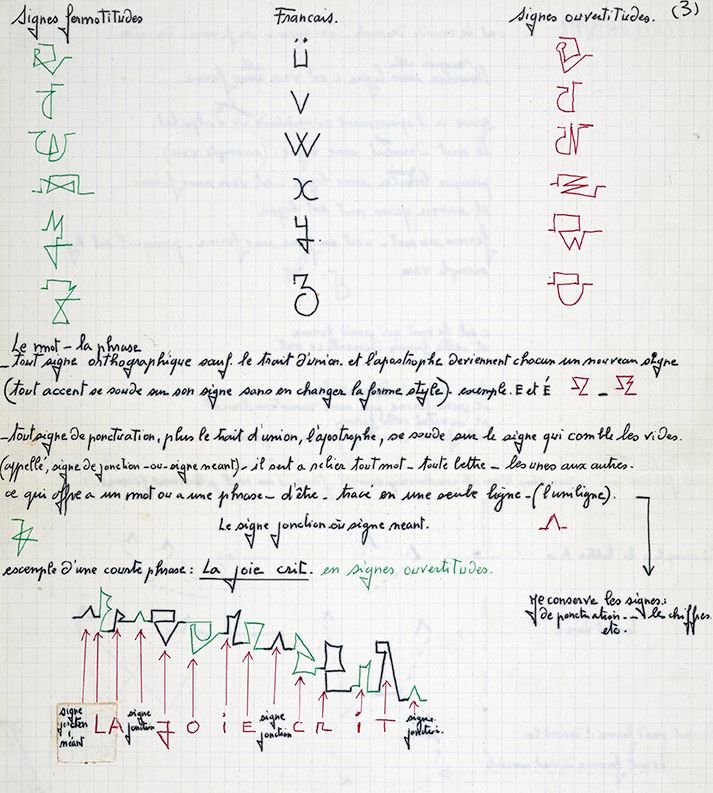 Signes fermotitudes Francais. Signes ouvertitudes. (3)
ü
v
w
x
y
z
Le mot – la phrase
– tout signe orthographique sauf le trait d'union. et l'apostrophe deviennent chacun un nouveau signe
(tout accent se soude sur son signe sans en changer la forme style). exemple. E et É –
– tout signe de ponctuation, plus le trait d'union, l'apostrophe, se soude sur le signe qui comble les vides.
(appellé, signe de jonction – ou – signe neant) – il sert a relier tout mot – toute lettre – les unes aux autres.
ce qui offre a un mot ou a une phrase – d'être – tracé en une seule ligne – (l'uniligne).
Le signe jonction ou signe neant.
exemple d'une courte phrase : La joie crit. en signes ouvertitudes.
Je conserve les signes :
de ponctuation. – les chiffres
etc.
signe jonction néant L A signe jonction J O i E signe jonction C R i T signe jonction.